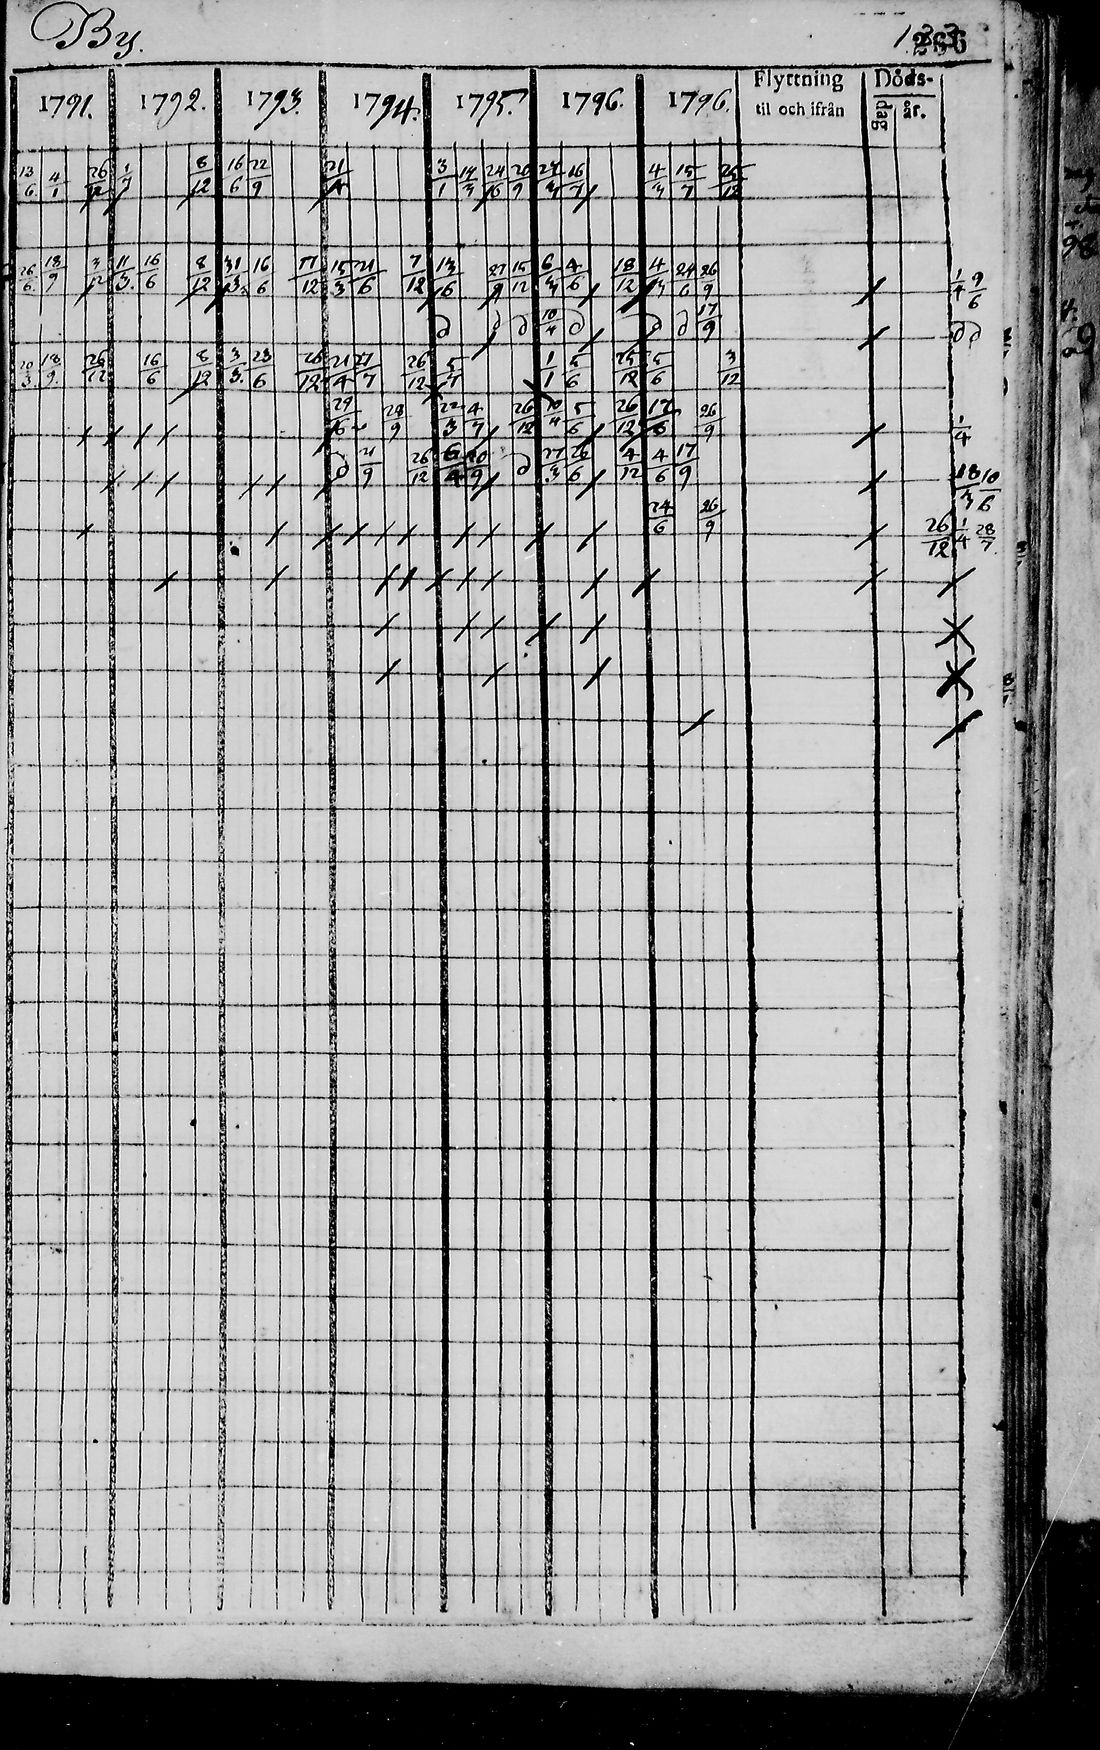 By.
1791. 1792. 1793. 1794. 1795. 1796. 1796. Flyttning til och ifrån Döds- dag år.
13/6 4/1 26/12 1/7 8/12 16/6 22/9 21/4 3/1 14/3 24/6 20/9 27/3 16/7 4/3 15/7 25/12
26/6 18/9 3/12 11/3. 16/6 8/12 31/3. 16/6 17/12 15/3 21/6 7/12 13/16 27/9 15/12 6/3 4/6 18/12 4/3 24/6 26/9 1/4 9/6
d d d 10/4 d d d 17/9 d d
20/3 18/9. 26/12 16/6 8/12 3/3. 23/6 26/12 21/4 27/7 26/12 5/4 1/1 5/6 25/12 5/6 3/12
29/6 28/9 22/3 4/7 26/12 10/4 5/6 26/12 17/6 26/9 1/4
d 21/9 26/12 6/4 20/9 d 27/3 26/6 4/12 4/6 17/9 18/3 10/6
24/6 26/9 26/12 1/4 28/7.